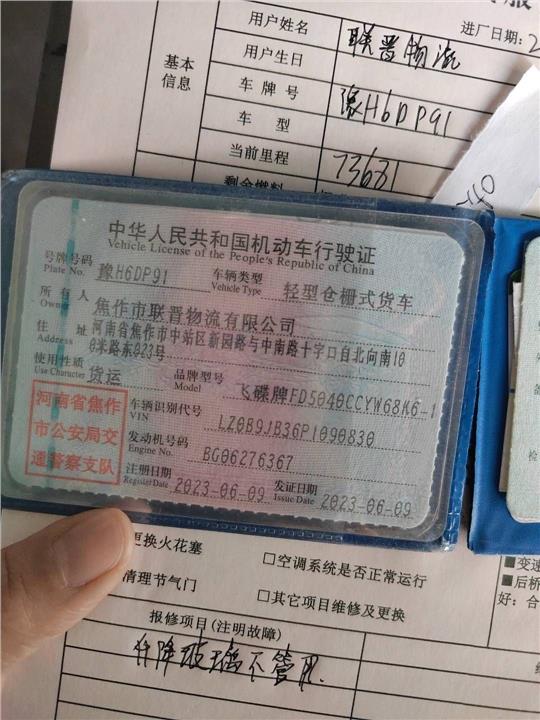 用户姓名 联晋物流 进厂日期:2
用户生日
基本
信息
车牌号 豫H6DP91
车型
当前里程 73681
剩余燃料
中华人民共和国机动车行驶证
Vehicle License of the People's Republic of China
号牌号码 豫H6DP91 车辆类型 轻型仓栅式货车
Plate No. Vehicle Type
所有人 焦作市联晋物流有限公司
Owner
住址 河南省焦作市中站区新园路与中南路十字口自北向南10
Address 0米路东023号
使用性质 货运 品牌型号 飞碟牌FD5040CCYW68K6-1
Use Character Model
河南省焦作
市公安局交
通警察支队
车辆识别代号 LZ0B9JB36P1090830
VIN
发动机号码 BG06276367
Engine No.
注册日期 2023-06-09 发证日期 2023-06-09
Register Date Issue Date
更换火花塞 □空调系统是否正常运行
清理节气门 □其它项目维修及更换
■变速
■后桥
好：合
报修项目(注明故障)
升降玻璃不管用